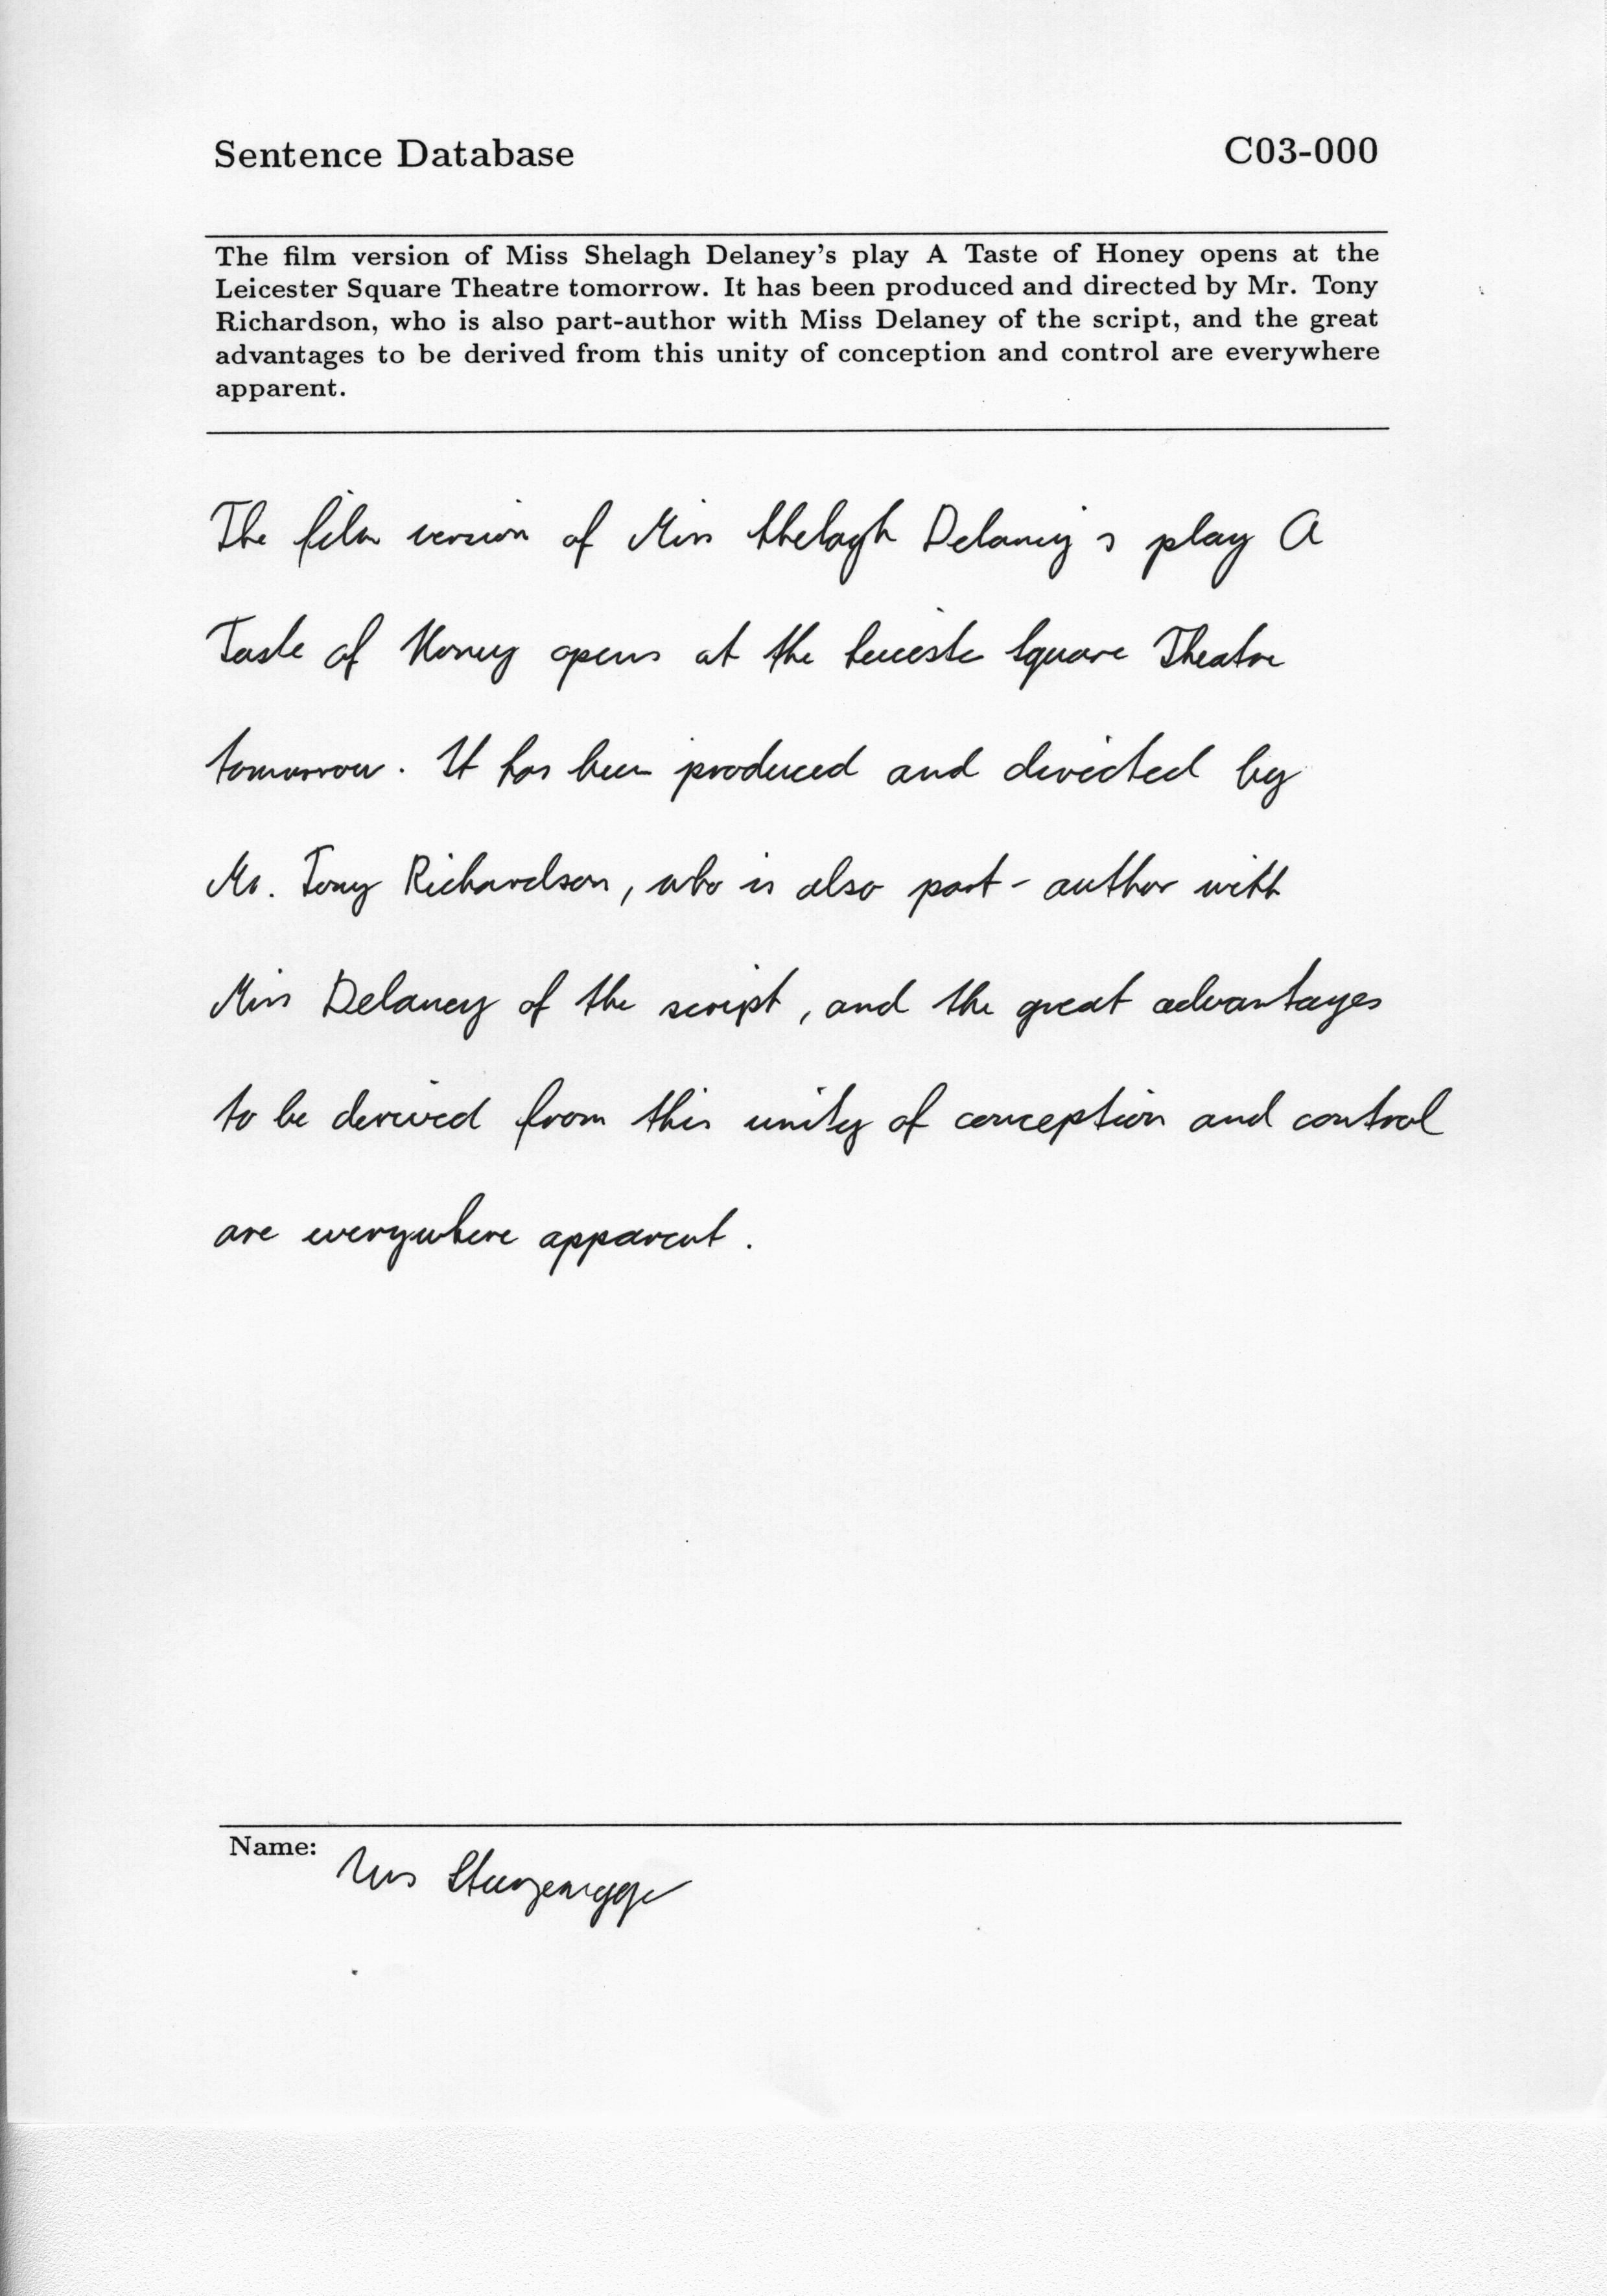 Sentence Database C03-000
The film version of Miss Shelagh Delaney's play A Taste of Honey opens at the
Leicester Square Theatre tomorrow. It has been produced and directed by Mr. Tony
Richardson, who is also part-author with Miss Delaney of the script, and the great
advantages to be derived from this unity of conception and control are everywhere
apparent.
The film version of Miss Shelagh Delaney's play A
Taste of Honey opens at the Leicester Square Theatre
tomorrow. It has been produced and directed by
Mr. Tony Richardson, who is also part-author with
Miss Delaney of the script, and the great advantages
to be derived from this unity of conception and control
are everywhere apparent.
Name: Urs